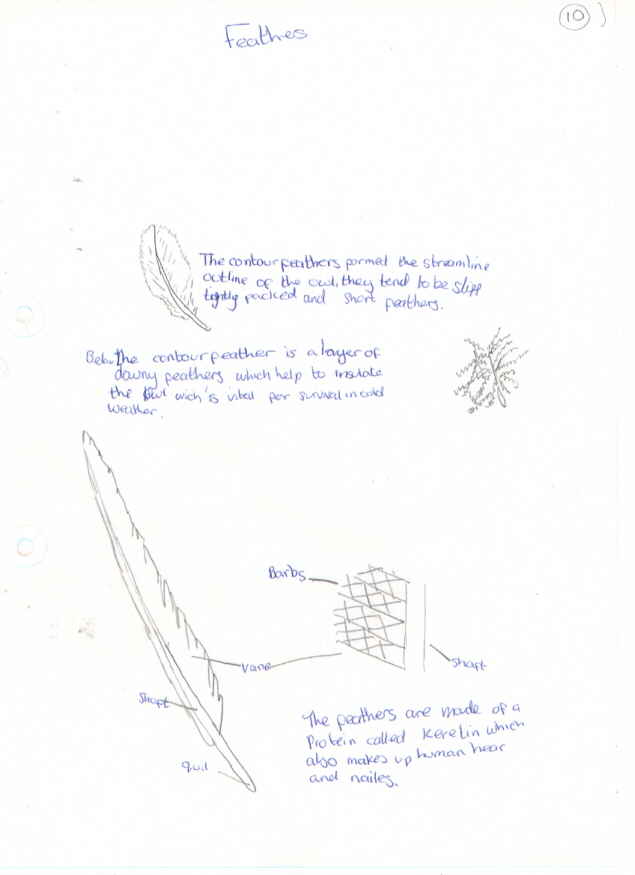 10
Feathes
The contour feathers formed the streamline
outline of the owl, they tend to be
tightly packed and short feathers.
Below the contour feather is a layer of
downy feathers which help to insulate
the owl wich is vital for survival in cold
weather.
Barbs
Vane
Shaft
Shaft
quil
The feathers are made of a
Protein called Keretin which
also makes up human hear
and nailes.